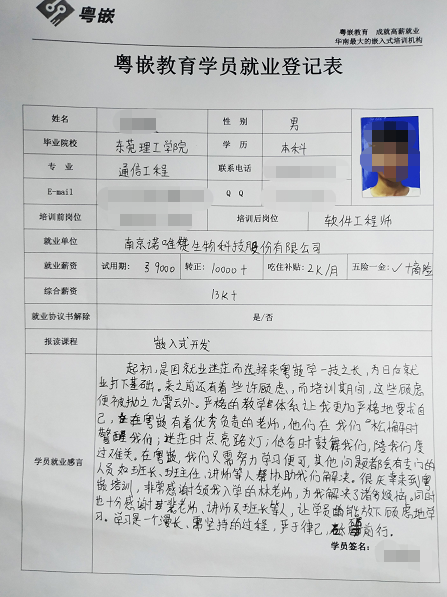 粤嵌
粤嵌教育 成就高薪就业
华南最大的嵌入式培训机构
粤嵌教育学员就业登记表
姓名 性 别 男
毕业院校 东莞理工学院 学 历 本科
专 业 通信工程 联系电话
E-mail Q Q
培训前岗位 培训后岗位 软件工程师
就业单位 南京诺唯赞生物科技股份有限公司
就业薪资 试用期: 9000 转正: 10000+ 吃住补贴: 2K/月 五险一金: ✓+商险
综合薪资 13K+
就业协议书解除 是/否
报读课程 嵌入式开发
学员就业感言
起初,是因就业迷茫而选择来粤嵌学一技之长,为日后就
业打下基础。来之前还有着些许顾虑,而培训期间,这些顾虑
便被抛之九霄云外。严格的教学体系让我更加严格地要求自
己,在粤嵌有着优秀负责的老师,他们在我们松懈时
警醒我们;迷茫时点亮路灯;低谷时鼓舞我们,陪我们度
过难关。在粤嵌,我们只需努力学习便可,其他问题都会有专门的
人员如班长、班主任、讲师等人帮协助我们解决。很庆幸来到粤
嵌培训,非常感谢领我入学的林老师,为我解决了诸多烦恼。同时
也十分感谢老师、讲师及班长等人,让学员能放下顾虑地学
习。学习是一个漫长、需坚持的过程,严于律己,砥砺前行。
学员签名: